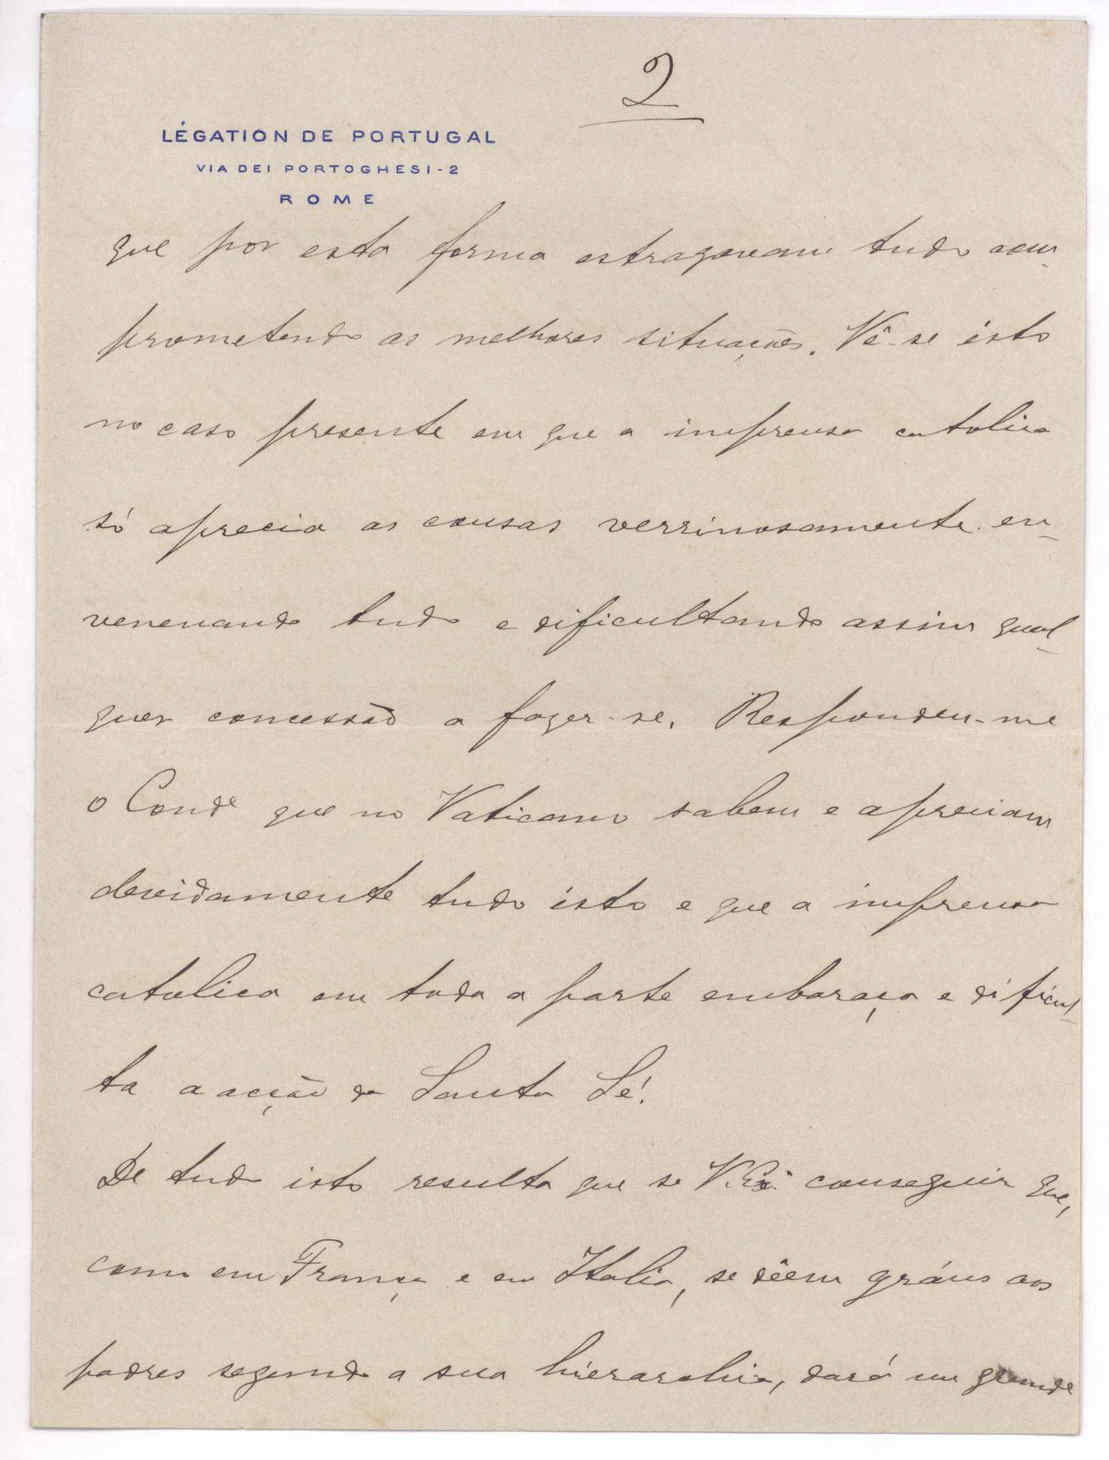 2
LÉGATION DE PORTUGAL
VIA DEI PORTOGHESI-2
ROME
que por esta forma estragavam tudo com-
prometendo as melhores situações. Vê-se isto
no caso presente em que a imprensa catolica
só aprecia as cousas verrinosamente en-
venenando tudo e dificultando assim qual-
quer concessão a fazer-se. Respondeu-me
o Conde que no Vaticano sabem e apreciam
devidamente tudo isto e que a imprensa
catolica em toda a parte embaraça e dificul-
ta a acção da Santa Sé!
De tudo isto resulta que se V. Exª conseguir que,
como em França e em Italia, se dêem gráus aos
padres segundo a sua hierarchia, dará um grande